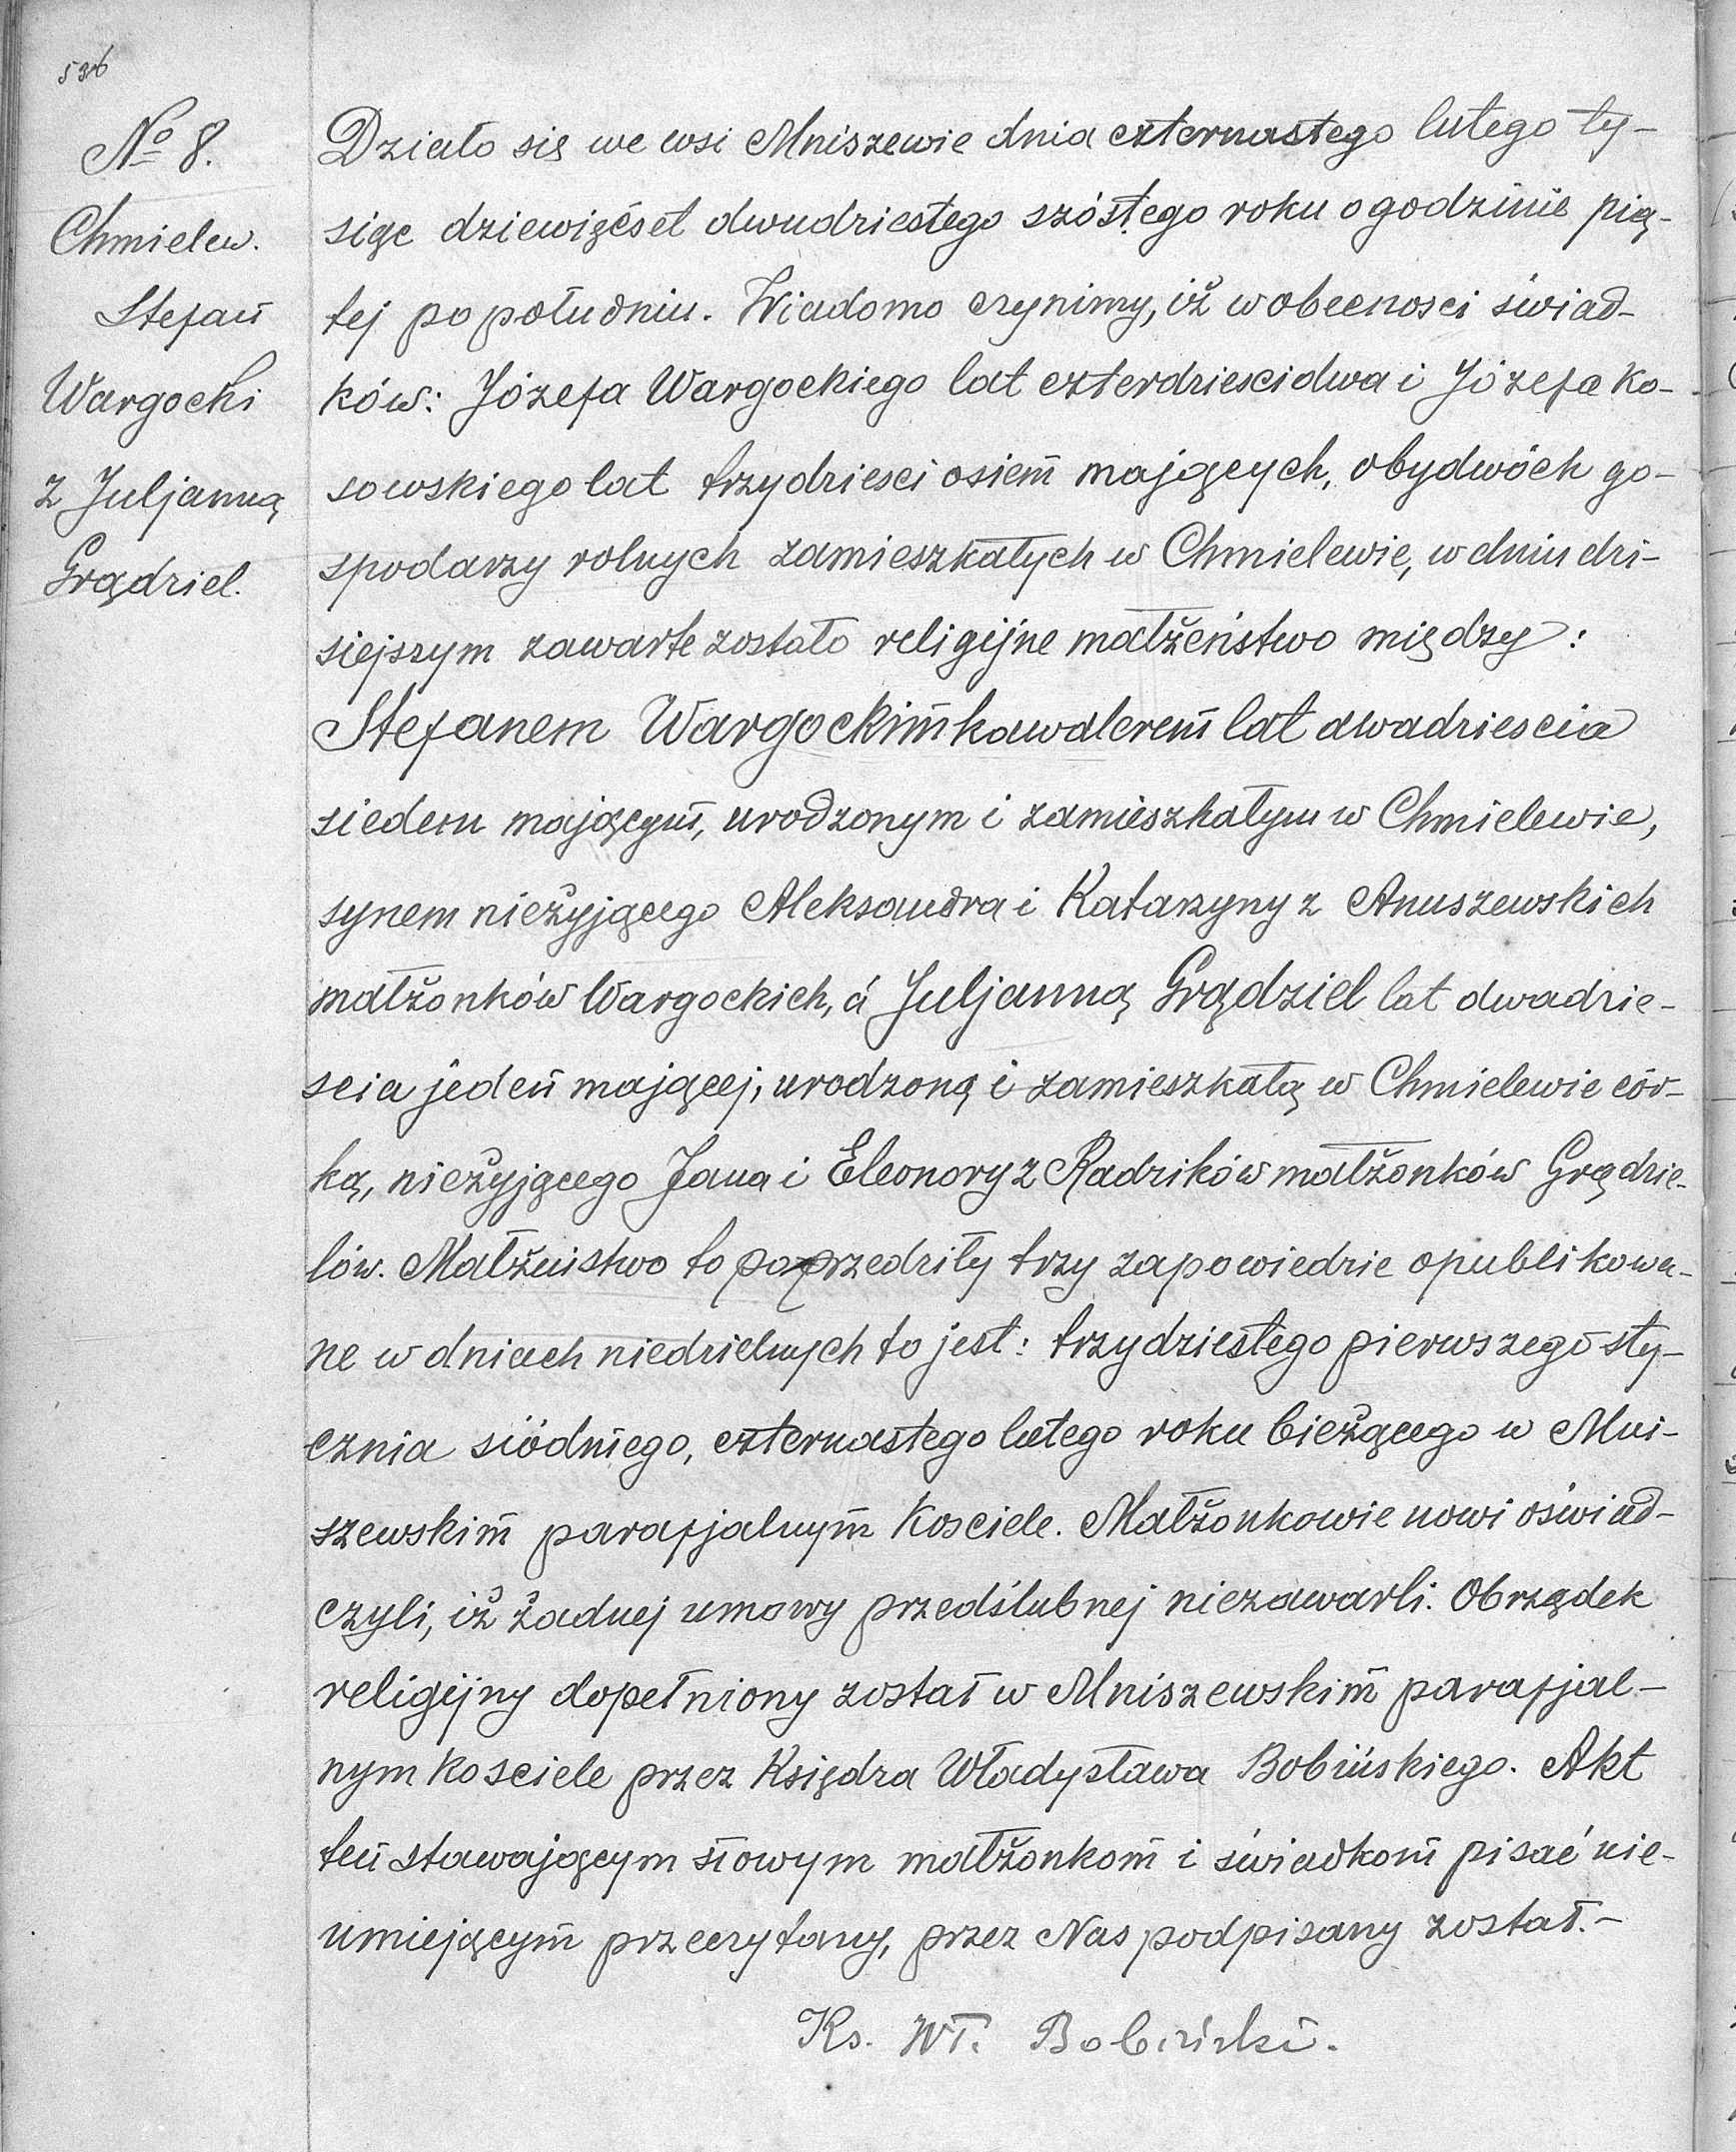 536
No 8.
Chmielew.
Stefan
Wargocki
z Juljanną
Grądziel.
Działo się we wsi Mniszewie dnia czternastego lutego ty-
siąc dziewięćset dwudziestego szóstego roku o godzinie pią-
tej po południu. Wiadomo czynimy, iż w obecnosci świad-
ków: Józefa Wargockiego lat czterdziesci dwa i Józefa Ko-
sowskiego lat trzydziesci osiem mających, obydwóch go-
spodarzy rolnych zamieszkałych w Chmielewie, w dniu dzi-
siejszym zawarte zostało religijne małżeństwo między:
Stefanem Wargockim kawalerem lat dwadziescia
siedem mającym, urodzonym i zamieszkałym w Chmielewie,
synem nieżyjącego Aleksandra i Katarzyny z Anuszewskich
małżonków Wargockich, á Juljanną Grądziel lat dwadzie-
scia jeden mającej, urodzoną i zamieszkałą w Chmielewie cór-
ką, nieżyjącego Jana i Eleonory z Radzików małżonków Grądzie-
lów. Małżeistwo to poprzedziły trzy zapowiedzie opublikowa-
ne w dniach niedzielnych to jest: trzydziestego pierwszego sty-
cznia siódmego, czternastego lutego roku bieżącego w Mni-
szewskim parafjalnym Kosciele. Małżonkowie nowi oświad-
czyli, iż żadnej umowy przedślubnej niezawarli. Obrządek
religijny dopełniony został w Mniszewskim parafjal-
nym kosciele przez Księdza Władysława Bobińskiego. Akt
ten stawającym nowym małżonkom i świadkom pisać nie-
umiejącym przeczytany, przez Nas podpisany został.-
Ks. Wł. Bobiński.